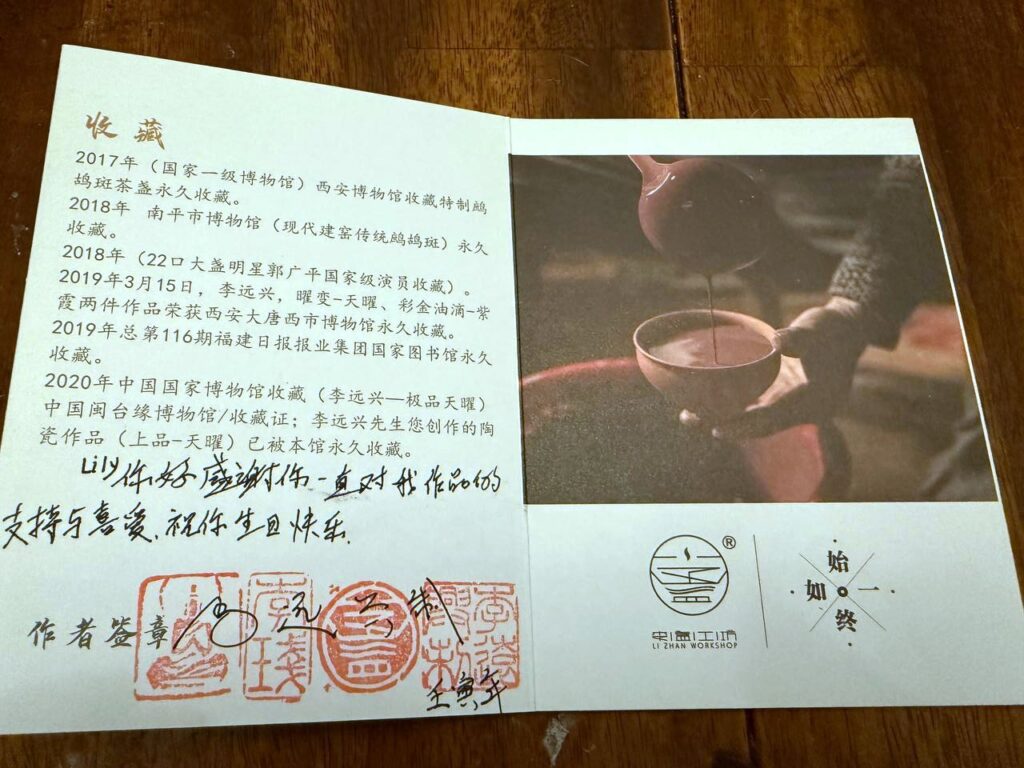 收藏
2017年（国家一级博物馆）西安博物馆收藏特制鹧
鸪斑茶盏永久收藏。
2018年 南平市博物馆（现代建窑传统鹧鸪斑）永久
收藏。
2018年（22口大盏明星郭广平国家级演员收藏）。
2019年3月15日，李远兴，曜变-天曜、彩金油滴-紫
霞两件作品荣获西安大唐西市博物馆永久收藏。
2019年总第116期福建日报报业集团国家图书馆永久
收藏。
2020年中国国家博物馆收藏（李远兴—极品天曜）
中国闽台缘博物馆/收藏证；李远兴先生您创作的陶
瓷作品（上品-天曜）已被本馆永久收藏。
Lily你好感谢你一直对我作品的
支持与喜爱.祝你生日快乐.
作者签章 李远兴制
壬寅年
®
LI ZHAN WORKSHOP
始
如 一
终